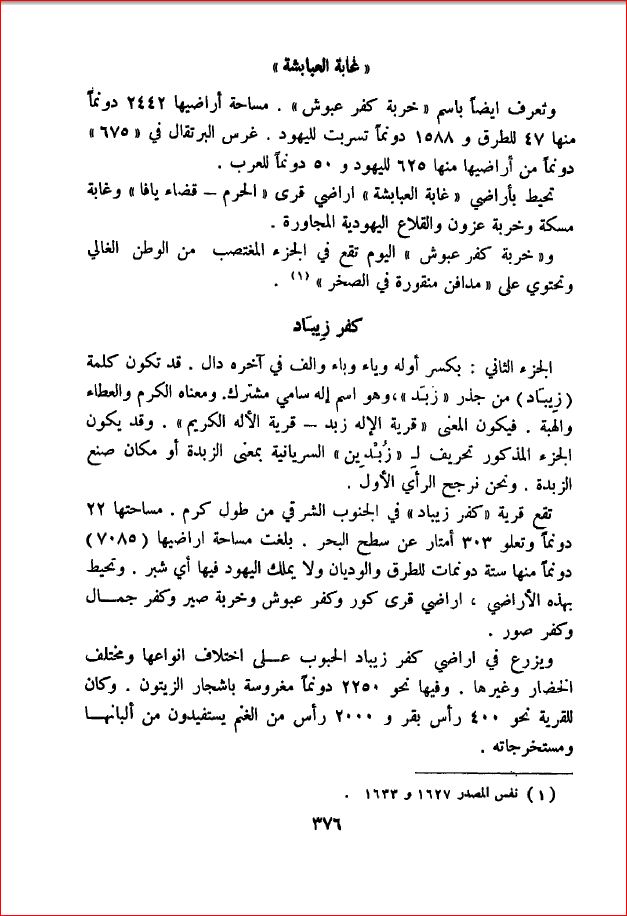 « غابة العبابشة »
وتعرف ايضاً باسم « خربة كفر عبوش » . مساحة أراضيها ٢٤٤٢ دونماً
منها ٤٧ للطرق و ١٥٨٨ دونماً تسربت لليهود . غرس البرتقال في « ٦٧٥ »
دونماً من أراضيها منها ٦٢٥ لليهود و ٥٠ دونماً للعرب .
تحيط بأراضي « غابة العبابشة » اراضي قرى « الحرم – قضاء يافا » وغابة
مسكة وخربة عزون والقلاع اليهودية المجاورة .
و« خربة كفر عبوش » اليوم تقع في الجزء المغتصب من الوطن الغالي
وتحتوي على « مدافن منقورة في الصخر » (١) .
كفر زِيبَاد
الجزء الثاني : بكسر أوله وياء وباء والف في آخره دال . قد تكون كلمة
(زِيبَاد) من جذر « زبَد »،وهو اسم إله سامي مشترك. ومعناه الكرم والعطاء
والهبة . فيكون المعنى « قرية الإله زبد – قرية الأله الكريم » . وقد يكون
الجزء المذكور تحريف لـِ « زُبْدِين » السريانية بمعنى الزبدة أو مكان صنع
الزبدة . ونحن نرجح الرأي الأول .
تقع قرية «كفر زيباد» في الجنوب الشرقي من طول كرم . مساحتها ٢٢
دونماً وتعلو ٣٠٣ أمتار عن سطح البحر . بلغت مساحة اراضيها (٧٠٨٥)
دونماً منها ستة دونمات للطرق والوديان ولا يملك اليهود فيها أي شبر . وتحيط
بهذه الأراضي ، اراضي قرى كور وكفر عبوش وخربة صير وكفر جمـــال
وكفر صور .
ويزرع في اراضي كفر زيباد الحبوب عـــلى اختلاف انواعها ومختلف
الخضار وغيرها . وفيها نحو ٢٢٥٠ دونماً مغروسة باشجار الزيتون . وكان
للقرية نحو ٤٠٠ رأس بقر و ٢٠٠٠ رأس من الغنم يستفيدون من ألبانهـــا
ومستخرجاته .
(١) نفس المصدر ١٦٢٧ و ١٦٣٣ .
٣٧٦